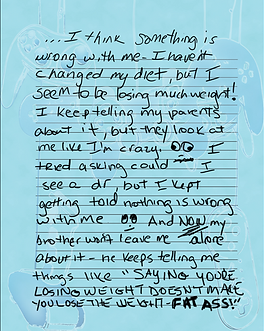 ...I think something is
wrong with me - I haven't
changed my diet, but I
seem to be losing much weight!
I keep telling my parents
about it, but they look at
me like I'm crazy. I
tried asking could I
see a dr, but I kept
getting told nothing is wrong
with me And NOW my
brother won't leave me alone
about it - he keeps telling me
things like "SAYING YOU'RE
LOSING WEIGHT DOESN'T MAKE
YOU LOSE THE WEIGHT - FAT ASS!"